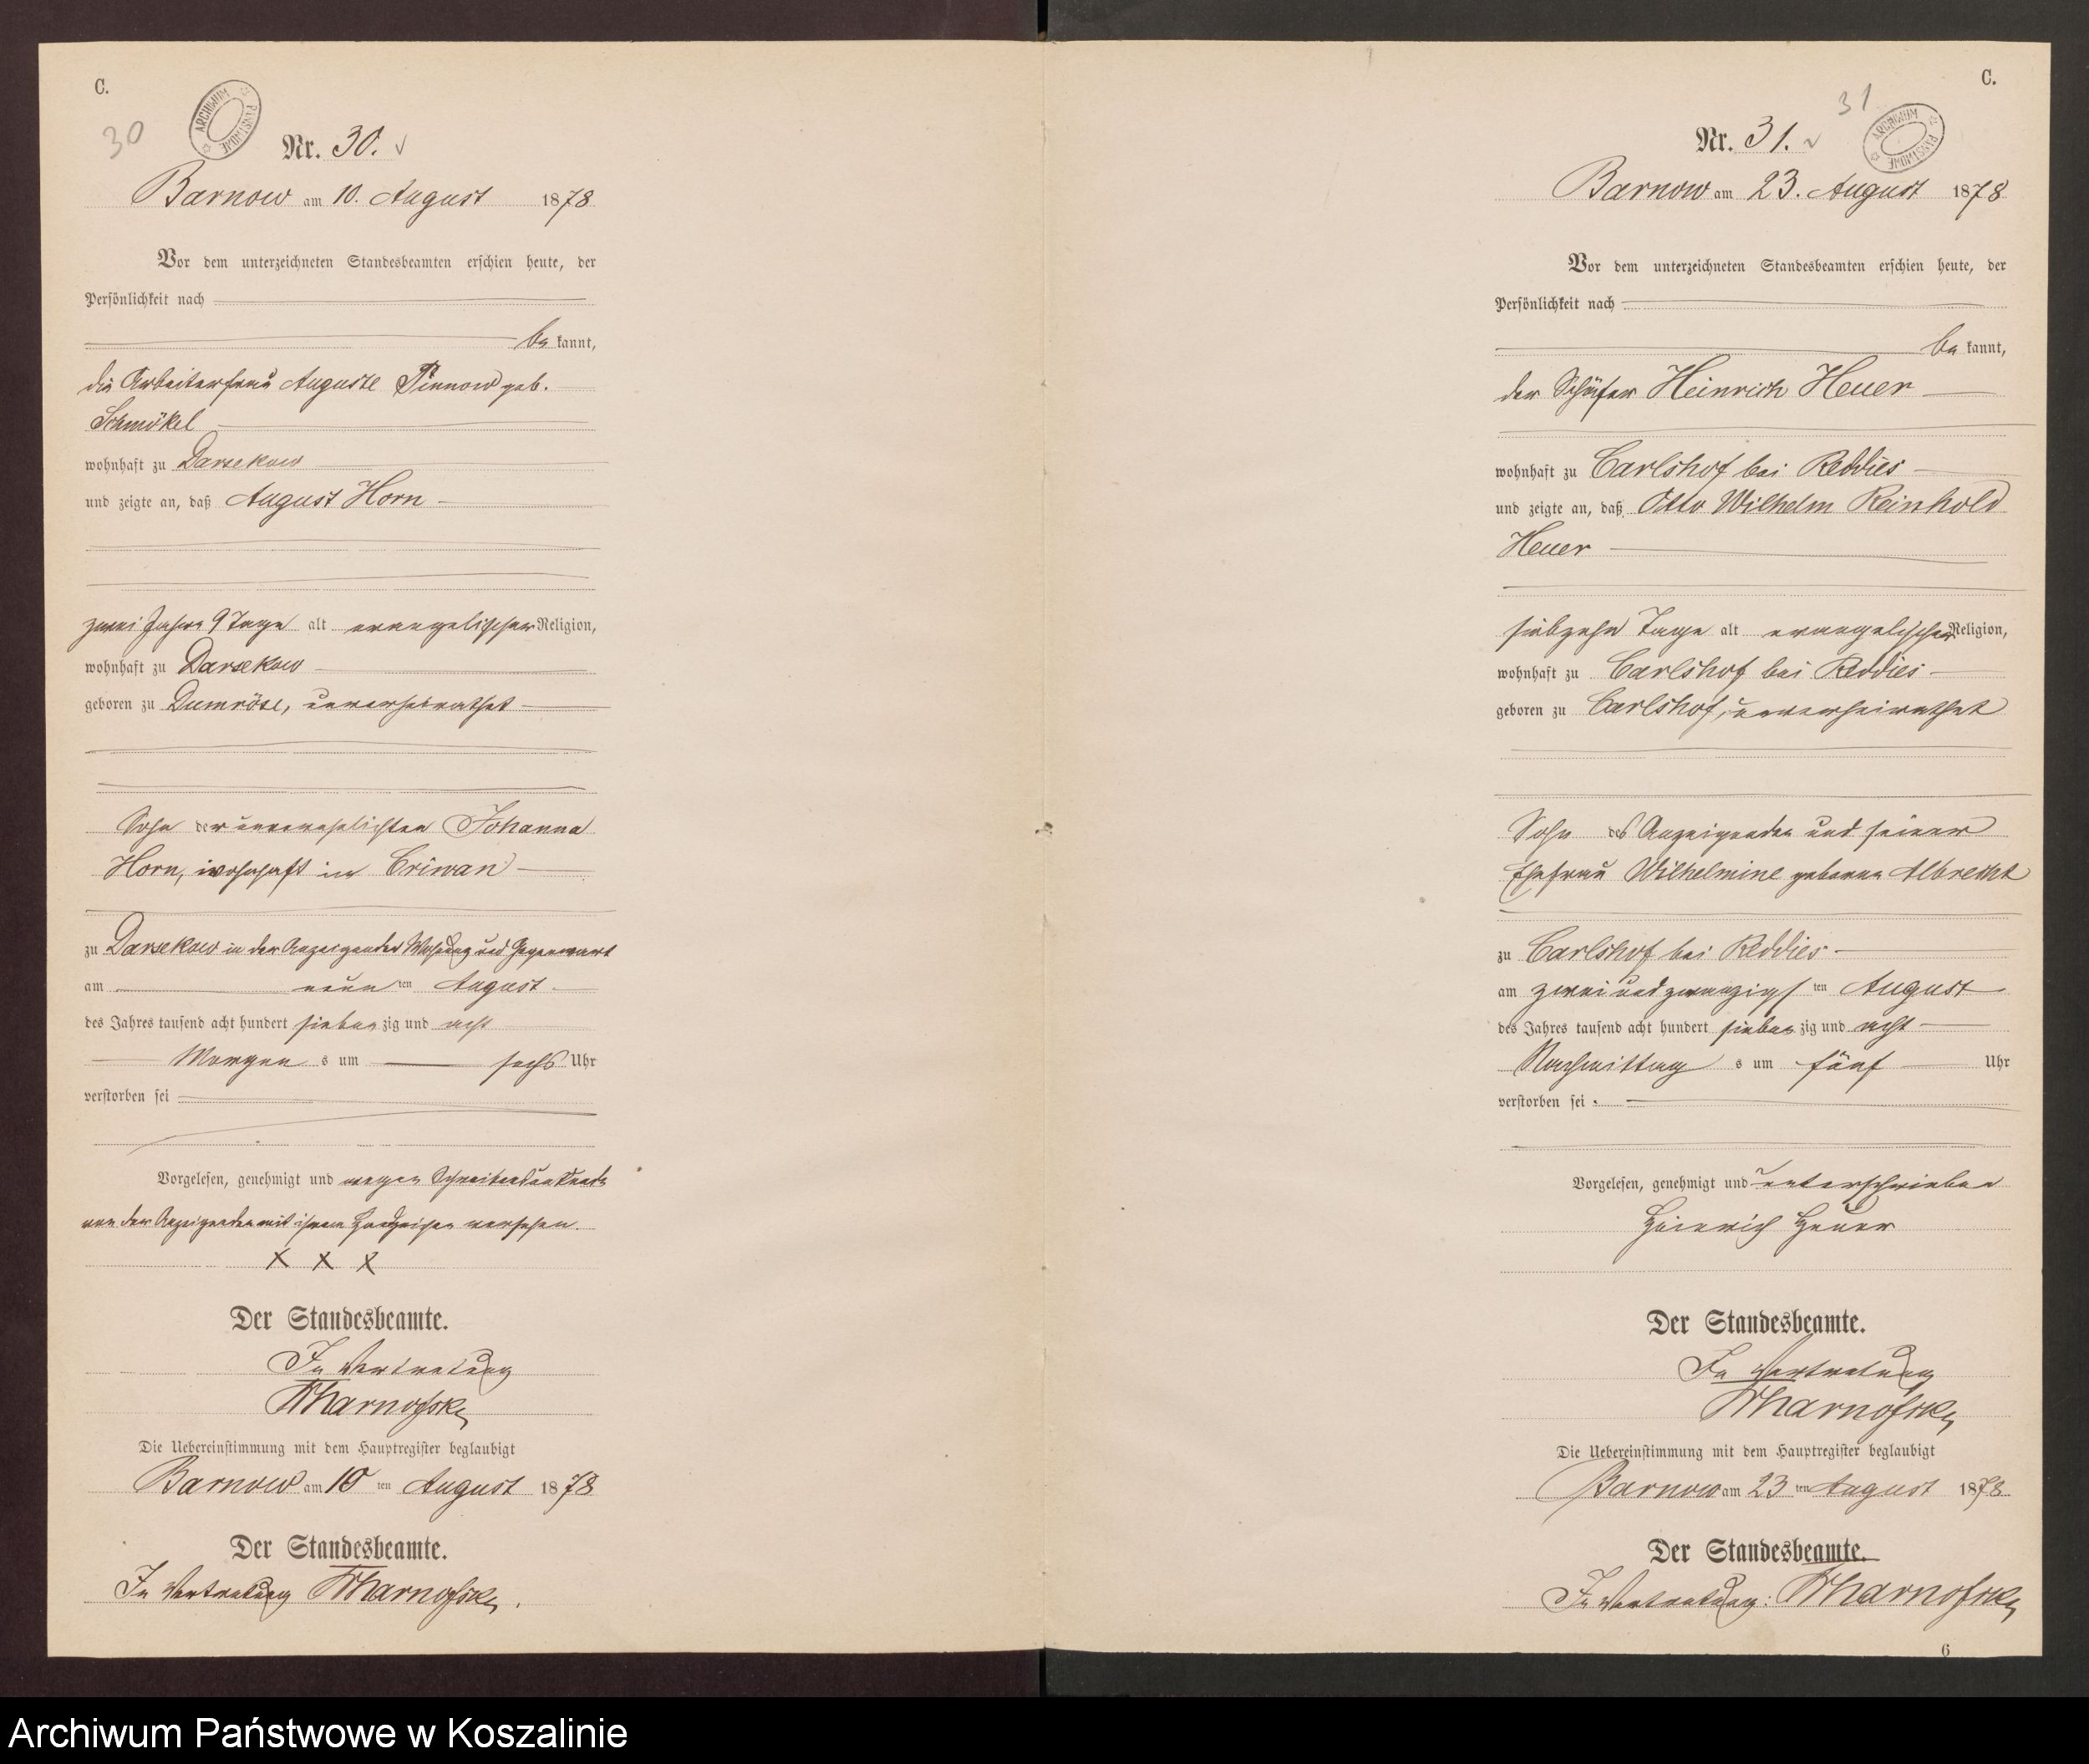 C.
30
ARCHIWUM PAŃSTWOWE
Nr. 30.
Barnow am 10. August 1878
Vor dem unterzeichneten Standesbeamten erschien heute, der
Persönlichkeit nach
be kannt,
die Arbeiterfrau Auguste Pinnow geb.
Schmökel
wohnhaft zu Darsekow
und zeigte an, daß August Horn
zwei Jahre 9 Tage alt evangelischer Religion,
wohnhaft zu Darsekow
geboren zu Dumröse, unverheirathet
Sohn der unverehelichten Johanna
Horn, wohnhaft in Criwan
zu Darsekow in der Anzeigenden Wohnung und Gegenwart
am neun ten August
des Jahres tausend acht hundert sieben zig und acht
Morgen s um sechs Uhr
verstorben sei
Vorgelesen, genehmigt und wegen Schreibensunkunde
von der Anzeigenden mit ihrem Handzeichen versehen.
X X X
Der Standesbeamte.
In Vertretung
Die Uebereinstimmung mit dem Hauptregister beglaubigt
Barnow am 10 ten August 1878
Der Standesbeamte.
In Vertretung
C.
31
ARCHIWUM PAŃSTWOWE
Nr. 31.
Barnow am 23. August 1878
Vor dem unterzeichneten Standesbeamten erschien heute, der
Persönlichkeit nach
be kannt,
der Schäfer Heinrich Heuer
wohnhaft zu Carlshof bei Reddies
und zeigte an, daß Otto Wilhelm Reinhold
Heuer
siebzehn Tage alt evangelischer Religion,
wohnhaft zu Carlshof bei Reddies
geboren zu Carlshof, unverheirathet
Sohn des Anzeigenden und seiner
Ehefrau Wilhelmine geborene Albrecht
zu Carlshof bei Reddies
am zwei und zwanzigs ten August
des Jahres tausend acht hundert sieben zig und acht
Nachmittag s um fünf Uhr
verstorben sei
Vorgelesen, genehmigt und unterschrieben
Heinrich Heuer
Der Standesbeamte.
In Vertretung
Die Uebereinstimmung mit dem Hauptregister beglaubigt
Barnow am 23 ten August 1878
Der Standesbeamte.
In Vertretung:
6
Archiwum Państwowe w Koszalinie